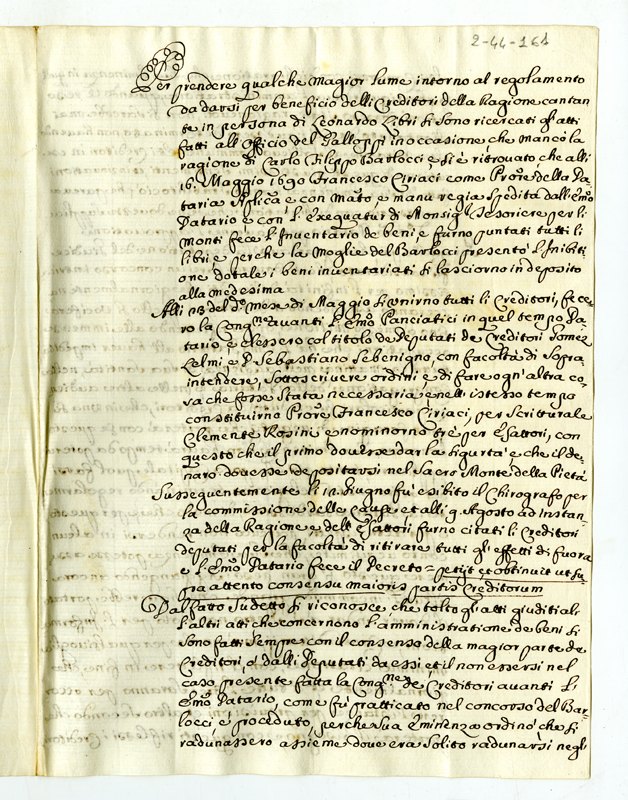 2-44-161
Per prendere qualche magior lume intorno al regolamento
da darsi per beneficio delli Creditori della Ragione cantan
te in persona di Leonardo Libri si sono ricercati gli atti
fatti all'Officio del Galloppi in occasione, che mancò la
ragione di Carlo Filippo Barlocci e si è ritrovato, che alli
16. Maggio 1690 Francesco Ciriaci come Prore della Da
taria Aplica e con mato, e manu regia spedita dall'Emo
Datario e con l'Exequatur di Monsig Tesoriere per li
monti fece l'Inventario de beni, e furno puntati tutti li
libri e perche la Moglie del Barlocci presentò l'Inibiti
one dotale i beni inventariati si lasciorno in deposito
alla medesima
Alli 23 del do mese di Maggio si unirno tutti li Creditori, fece
ro la Congne avanti l'Emo Panciatici in quel tempo Da
tario, e elessero col titolo de Deputati de Creditori Gomez
Lelmi, e D Sebastiano Sebenigno, con facoltà di sopra
intendere, sottoscrivere ordini e di fare ogn'altra co
sa che fosse stata necessaria e nell'istesso tempo
constituirno Prore Francesco Ciriaci, per Scritturale
Clemente Rosini e nominorno trè per Esattori, con
questo che il primo dovesse dar la sigurtà e che il de
naro dovesse depositarsi nel Sacro Monte della Pietà
Susseguentemente li 12 Giugno fù esibito il Chirografo per
la commissione della causa et alli 9 Agosto ad instan
za della Ragione e dell'Esattori, furno citati li Creditori
deputati per la facoltà di ritirare tutti gl'effetti di fuora
e l'Emo Datario fece il Decreto = petijt, et obtinuit ut su
pra attento consensu maioris partis Creditorum
Dal fatto Sudetto si riconosce, che tolto gl'atti giuditiali
l'altri atti che concernono l'amministratione de beni si
sono fatti sempre con il consenso della magior parte de
Creditori, ò dalli Deputati da essi et il non essersi nel
caso presente fatta la Congne de Creditori avanti l'
Emo Datario, come fù pratticato nel concorso del Bar
locci è proceduto, perche sua Eminenza ordinò che si
radunassero assieme dove era solito radunarsi negli